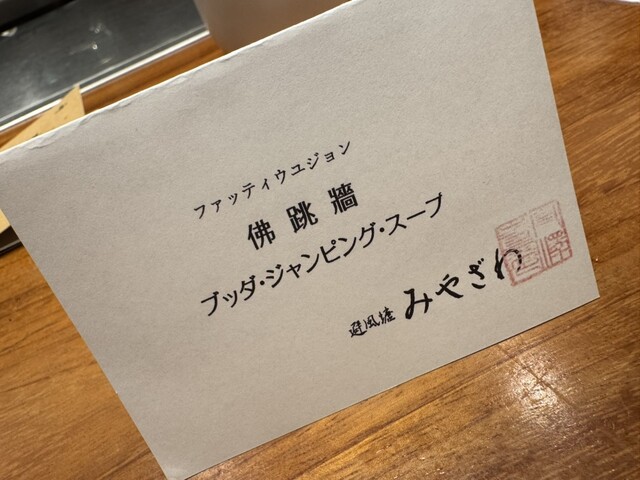 ファッティウユジョン
佛跳牆
ブッダ・ジャンピング・スープ
避風塘 みやざわ